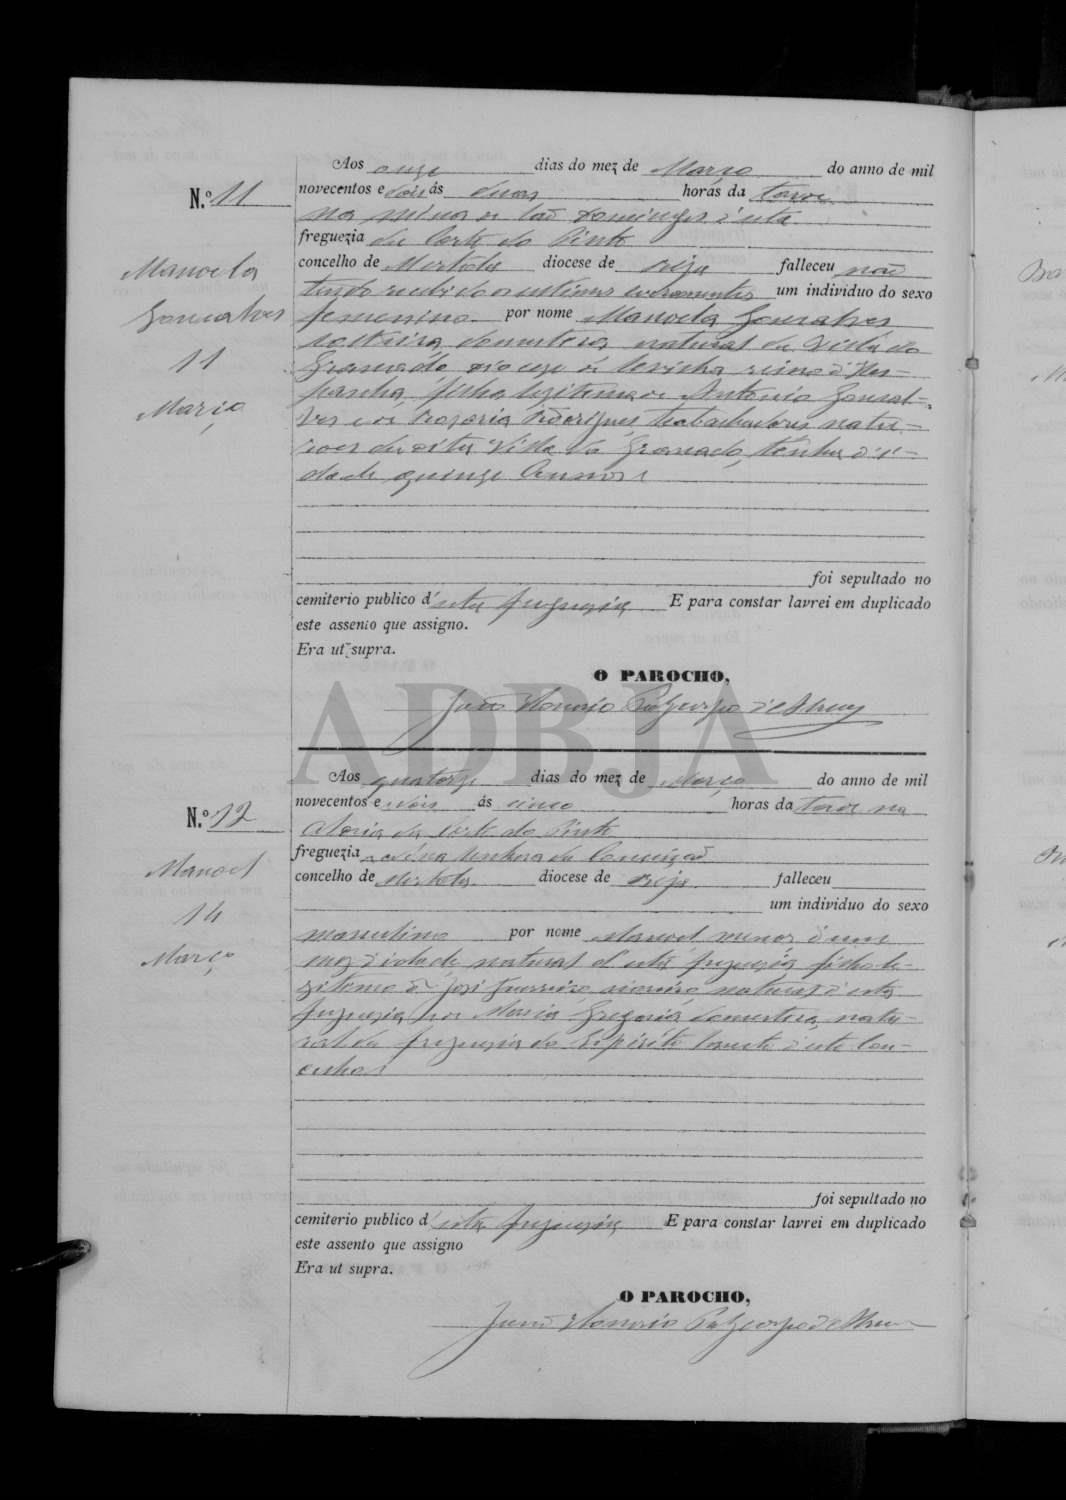 Aos onze dias do mez de Março do anno de mil
N.º 11
novecentos e dois ás duas horas da tarde
na mina de São Domingos d'esta
freguezia da Corte do Pinto
concelho de Mertola diocese de Beja falleceu não
tendo recebido os ultimos sacramentos um individuo do sexo
femenino por nome Manoela Gonsalves
Manoela
Gonsalves
11
Março
solteira, domestica, natural da Villa do
Granado diocese de Sevilha reino d'Hes-
panha, filha legitima de Antonio Gonsal-
ves e de Rodrigues, trabalhadores, natu-
raes da dita Villa do Granado, tenha d'i-
dade quinze annos
foi sepultado no
cemiterio publico d'esta freguezia E para constar lavrei em duplicado
este assento que assigno.
Era ut supra.
O PAROCHO,
João Honorio d'
ADBJA
Aos quatorze dias do mez de Março do anno de mil
N.º 12
novecentos e dois ás cinco horas da tarde na
Aldeia da Corte do Pinto
freguezia de Nossa Senhora da Conceição
concelho de Mertola diocese de Beja falleceu
um individuo do sexo
masculino por nome Manoel, menor, d'um
Manoel
14
Março
mez d'idade, natural d'esta freguezia, filho le-
gitimo de José Guerreiro, mineiro, natural d'esta
freguezia, e de Maria Gregoria, domestica, natu-
ral da freguezia do Espirito Santo d'este con-
celho
foi sepultado no
cemiterio publico d'esta freguezia E para constar lavrei em duplicado
este assento que assigno
Era ut supra.
O PAROCHO,
João Honorio d'